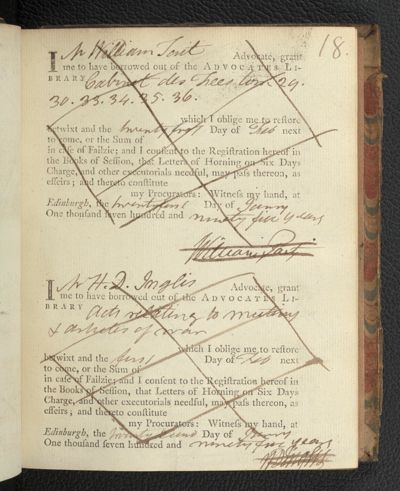 18.
I Mr William Tait Advocate, grant
me to have borrowed out of the ADVOCATES LI-
BRARY Cabinet des Fees vols 29.
30. 33. 34. 35. 36.
which I oblige me to restore
betwixt and the twenty first Day of Feb next
to come, or the Sum of
in case of Failzie; and I consent to the Registration hereof in
the Books of Session, that Letters of Horning on Six Days
Charge, and other executorials needful, may pass thereon, as
effeirs; and thereto constitute
my Procurators: Witness my hand, at
Edinburgh, the twenty first Day of Janry
One thousand seven hundred and ninety five years
William Tait
I Mr H. D. Inglis Advocate, grant
me to have borrowed out of the ADVOCATES LI-
BRARY Acts relating to mutiny
& articles of war
which I oblige me to restore
betwixt and the Day of Feb next
to come, or the Sum of
in case of Failzie; and I consent to the Registration hereof in
the Books of Session, that Letters of Horning on Six Days
Charge, and other executorials needful, may pass thereon, as
effeirs; and thereto constitute
my Procurators: Witness my hand, at
Edinburgh, the twenty second Day of Janry
One thousand seven hundred and ninety five years
H D Inglis